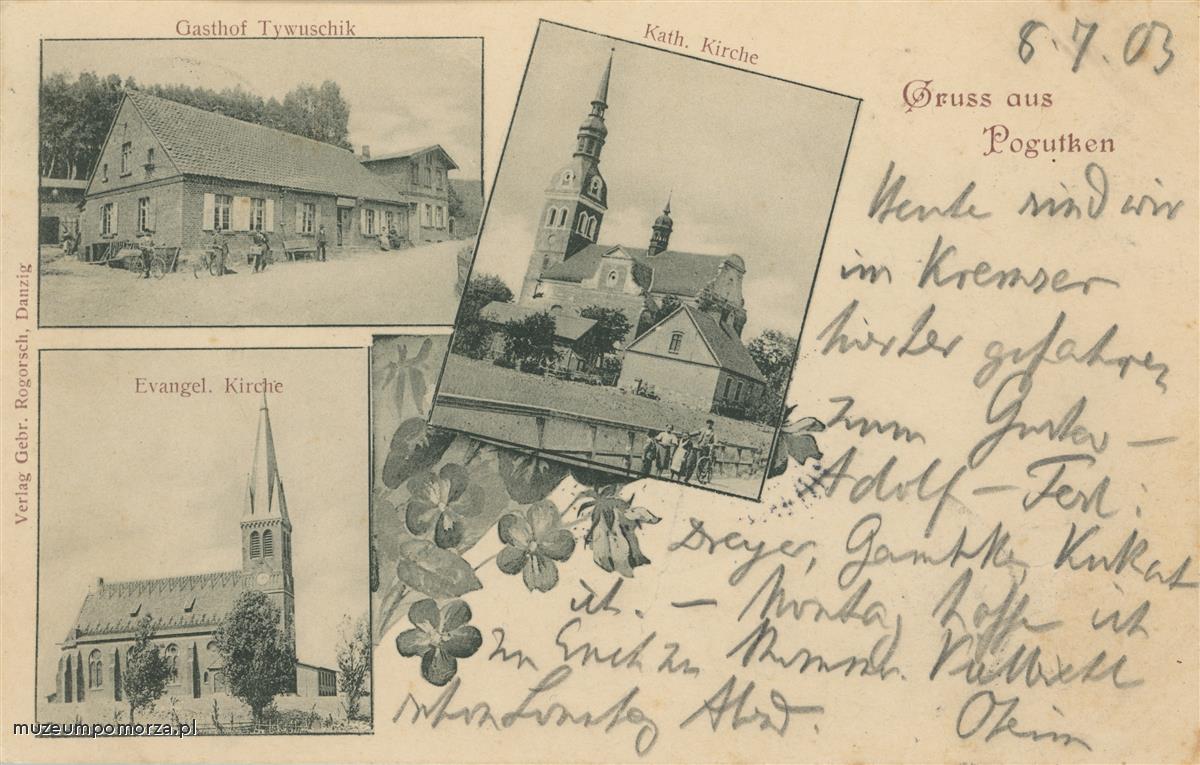 Gasthof Tywuschik
Kath. Kirche
8.7.03
Gruss aus
Pogutken
Evangel. Kirche
Verlag Gebr. Rogorsch, Danzig
Heute sind wir
im Kremser
hierher gefahren
zum Gustav-
Adolf-Fest:
Dreyer, Kukat
ich. - Montag hoffe ich
zu Euch zu kommen. Vielleicht
schon Sonntag Abend.
muzeumpomorza.pl